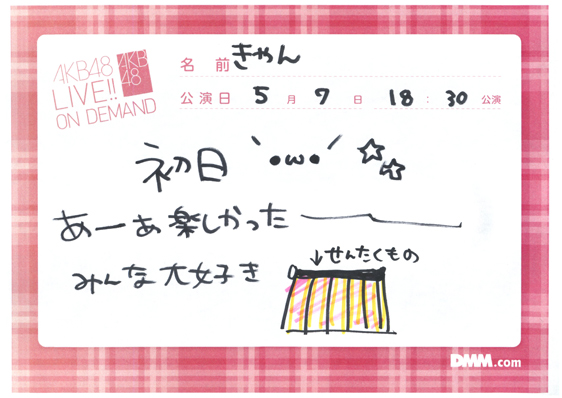 AKB48
LIVE!!
ON DEMAND
AKB
48
名前 きゃん
公演日 5月7日 18:30公演
初日 `•ω•´ ☆☆
あーあ楽しかった
↓せんたくもの
みんな大好き
DMM.com